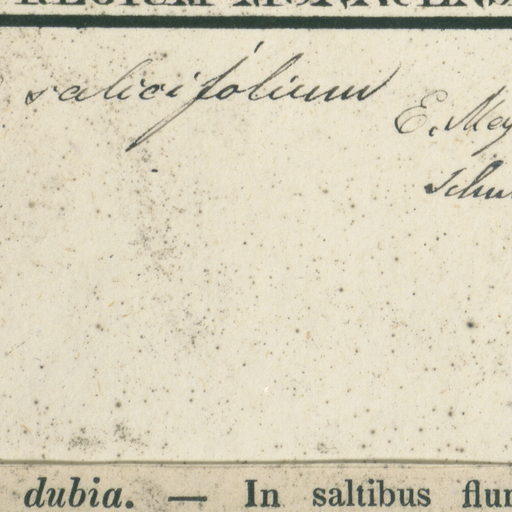 salicifolium
E. Mey
Schu
dubia. — In saltibus flum